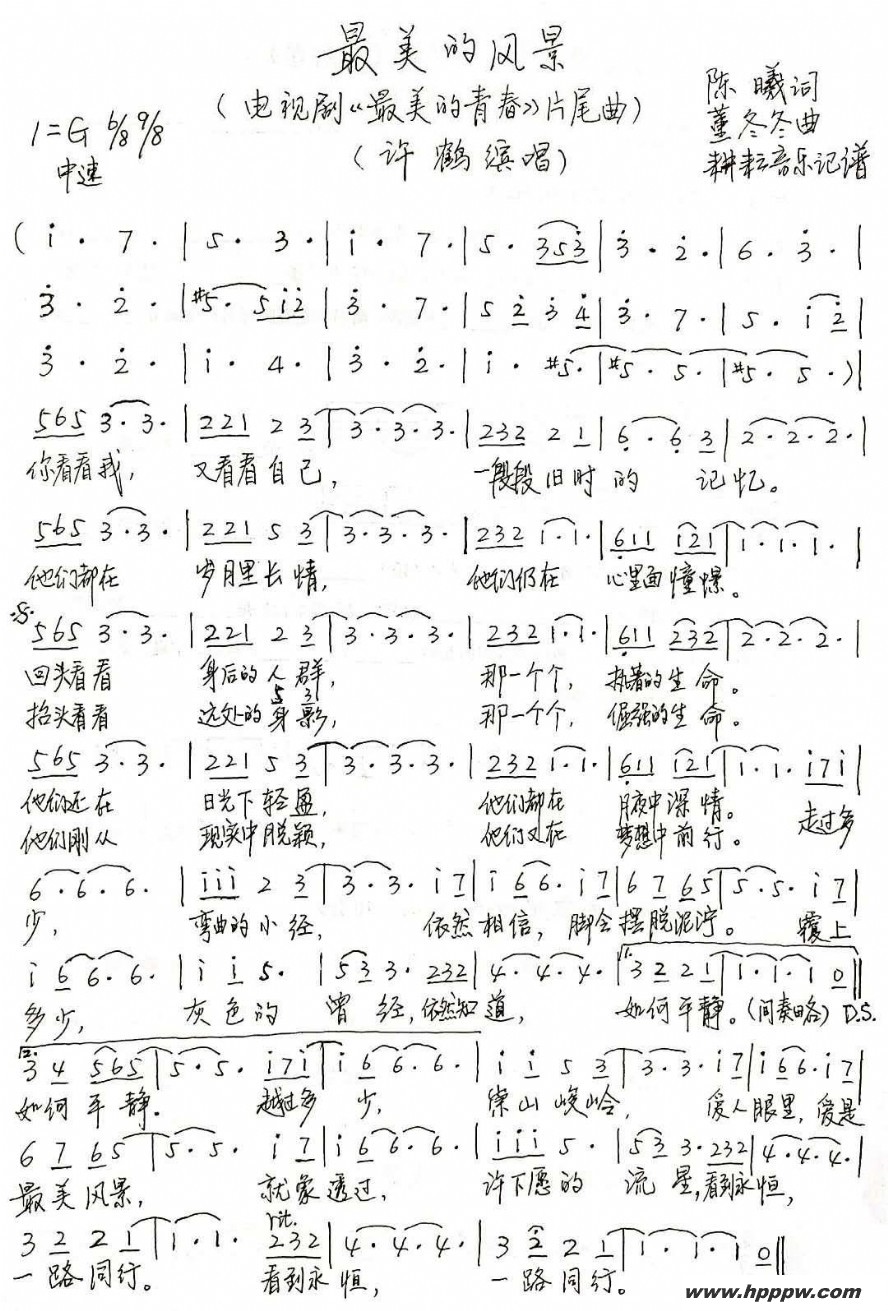 最美的风景
(电视剧《最美的青春》片尾曲)
(许鹤缤唱)
陈曦词
董冬冬曲
耕耘音乐记谱
1=G 6/8 9/8
中速
( i· 7· | 5· 3· | i· 7· | 5· 353 | 3· 2· | 6· 3· |
3· 2· | #5· 5i2 | 3· 7· | 5 2 3 4 | 3· 7· | 5· i 2 |
3· 2· | i· 4· | 3· 2· | i· #5· | #5· 5· | #5· 5· ) |
565 3·3· | 221 2 3 | 3·3·3· | 232 2 1 | 6·6 3 | 2·2·2· |
你看看我, 又看看自己, 一段段旧时的 记忆。
565 3·3· | 221 5 3 | 3·3·3· | 232 1·1· | 611 121 | 1·1·1· |
他们都在 岁月里长情, 他们仍在 心里面憧憬。
:S:
565 3·3· | 221 2 3 | 3·3·3· | 232 1·1· | 611 232 | 2·2·2· |
回头看看 身后的人群, 那一个个, 执着的生命。
5 3
抬头看看 远处的身影, 那一个个, 倔强的生命。
565 3·3· | 221 5 3 | 3·3·3· | 232 1·1· | 611 121 | 1·1· i7i |
他们还在 日光下轻盈, 他们都在 月夜中深情。 走过多
他们刚从 现实中脱颖, 他们又在 梦想中前行。
6·6·6· | iii 2 3 | 3·3· i 7 | i 6 6· i 7 | 6 7 65 | 5·5· i 7 |
少, 弯曲的小径, 依然相信, 脚会摆脱泥泞。 覆上
i 6 6·6· | i i 5· | 53 3· 232 | 4·4·4· | 1. 3 2 2 1 | 1·1·1 0 ‖
多少, 灰色的 曾经,依然知道, 如何平静。(间奏略) D.S.
2.
3 4 565 | 5·5· i7i | i 6 6·6· | i i 5 3 | 3·3· i 7 | i 6 6· i 7 |
如何平静。 越过多少, 崇山峻岭, 爱人眼里, 爱是
6 7 65 | 5·5· i 7 | i 6 6·6· | iii 5· | 53 3· 232 | 4·4·4· |
最美风景, 就象透过, 许下愿的 流星,看到永恒,
rit.
3 2 2 1 | 1·1· 232 | 4·4·4· | 3 2 2 1 | 1·1·1 0 ‖
一路同行。 看到永恒, 一路同行。
www.hpppw.com